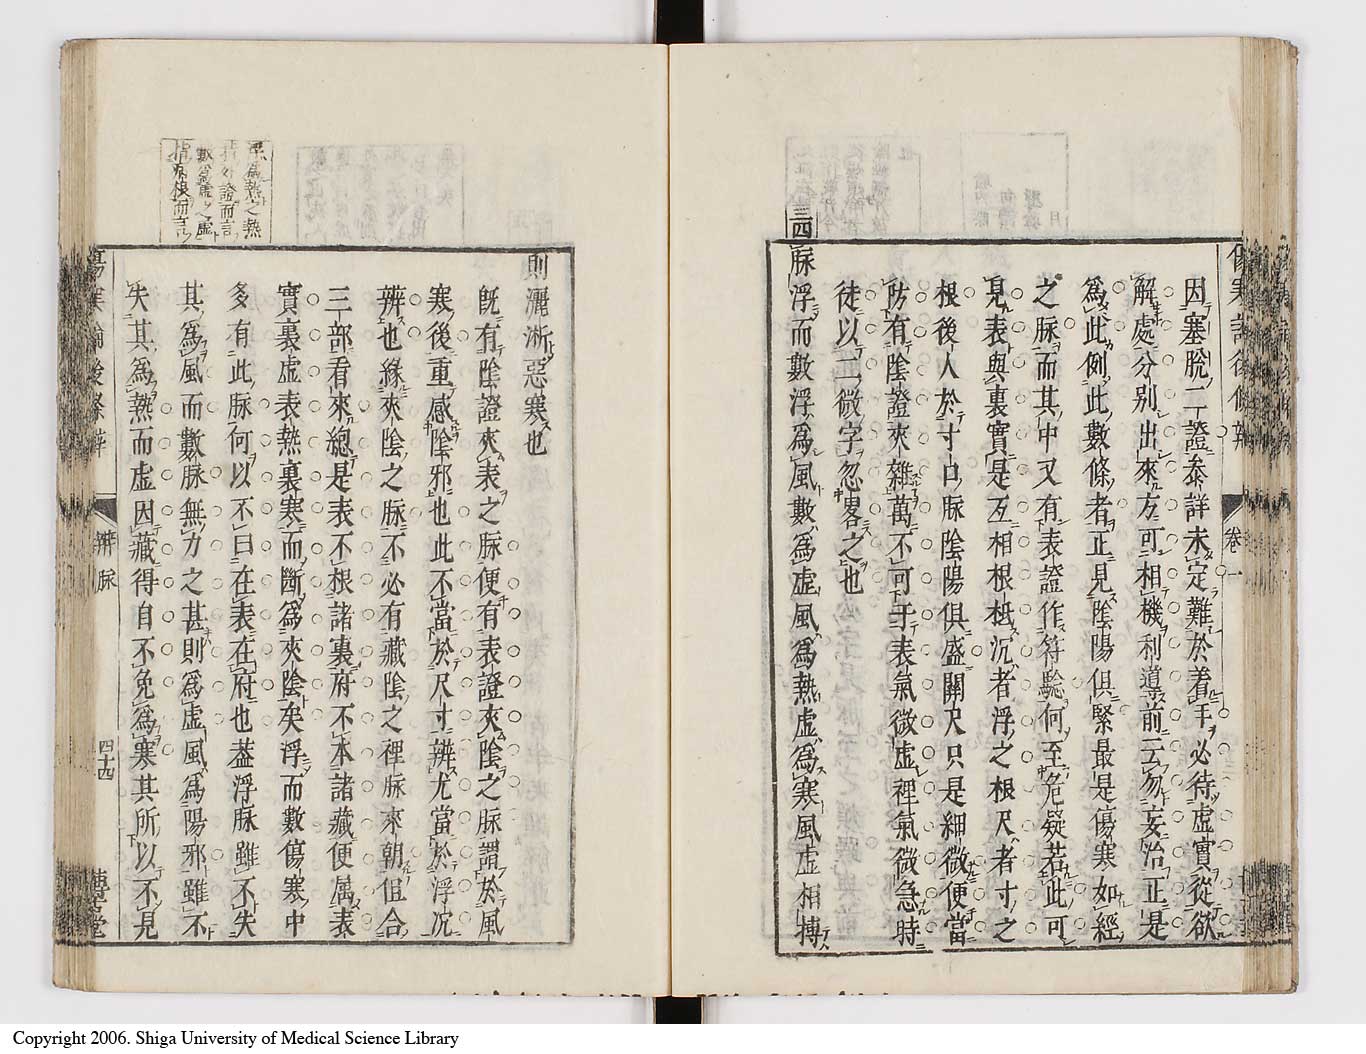 因塞脫二證叅詳未定難於着手必待虛實從欲
解處分別出來方可相機利導前云勿妄治正是
爲此例此數條者正見陰陽俱緊最是傷寒如經
之脉而其中又有表證作符驗何至危疑若此可
見表與裏實是互相根柢沉者浮之根尺者寸之
根後人於寸口脉陰陽俱盛關尺只是細微便當
防有陰證夾雜萬不可于表氣微虛裡氣微急時
徒以一微字忽畧之也
三四 脉浮而數浮爲風數爲虛風爲熱虛爲寒風虛相搏
卷一
則灑淅惡寒也
既有陰證夾表之脉便有表證夾陰之脉謂於風
寒後重感陰邪也此不當於尺寸辨尤當於浮沉
辨也緣夾陰之脉不必有藏陰之裡脉來朝但合
三部看來總是表不根諸裏府不本諸藏便属表
實裏虛表熱裏寒而斷爲夾陰矣浮而數傷寒中
多有此脉何以不曰在表在府也葢浮脉雖不失
其爲風而數脉無力之甚則爲虛風爲陽邪雖不
失其爲熱而虛因藏得自不免爲寒其所以不見
風爲熱之熱
指外證而言
數爲虛之虛
指病根而言
辨脉
四十四